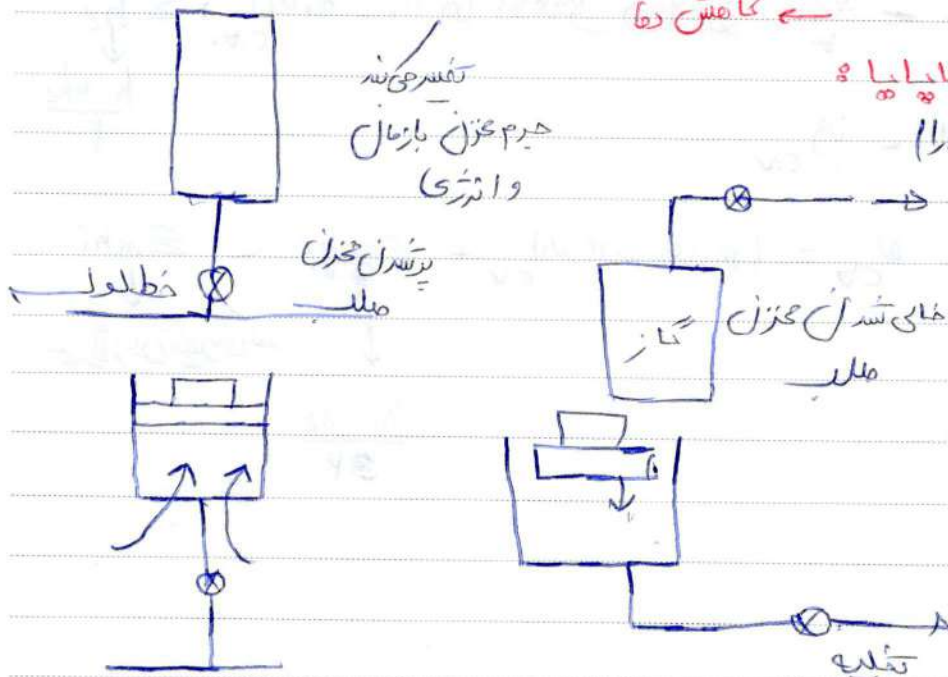 ← کاهش دما
ناپایا :
تغییر می‌کند
جرم مخزن با زمان
و انرژی
پر شدن مخزن
صلب
خط لوله
خالی شدن مخزن
صلب
گاز
تخلیه